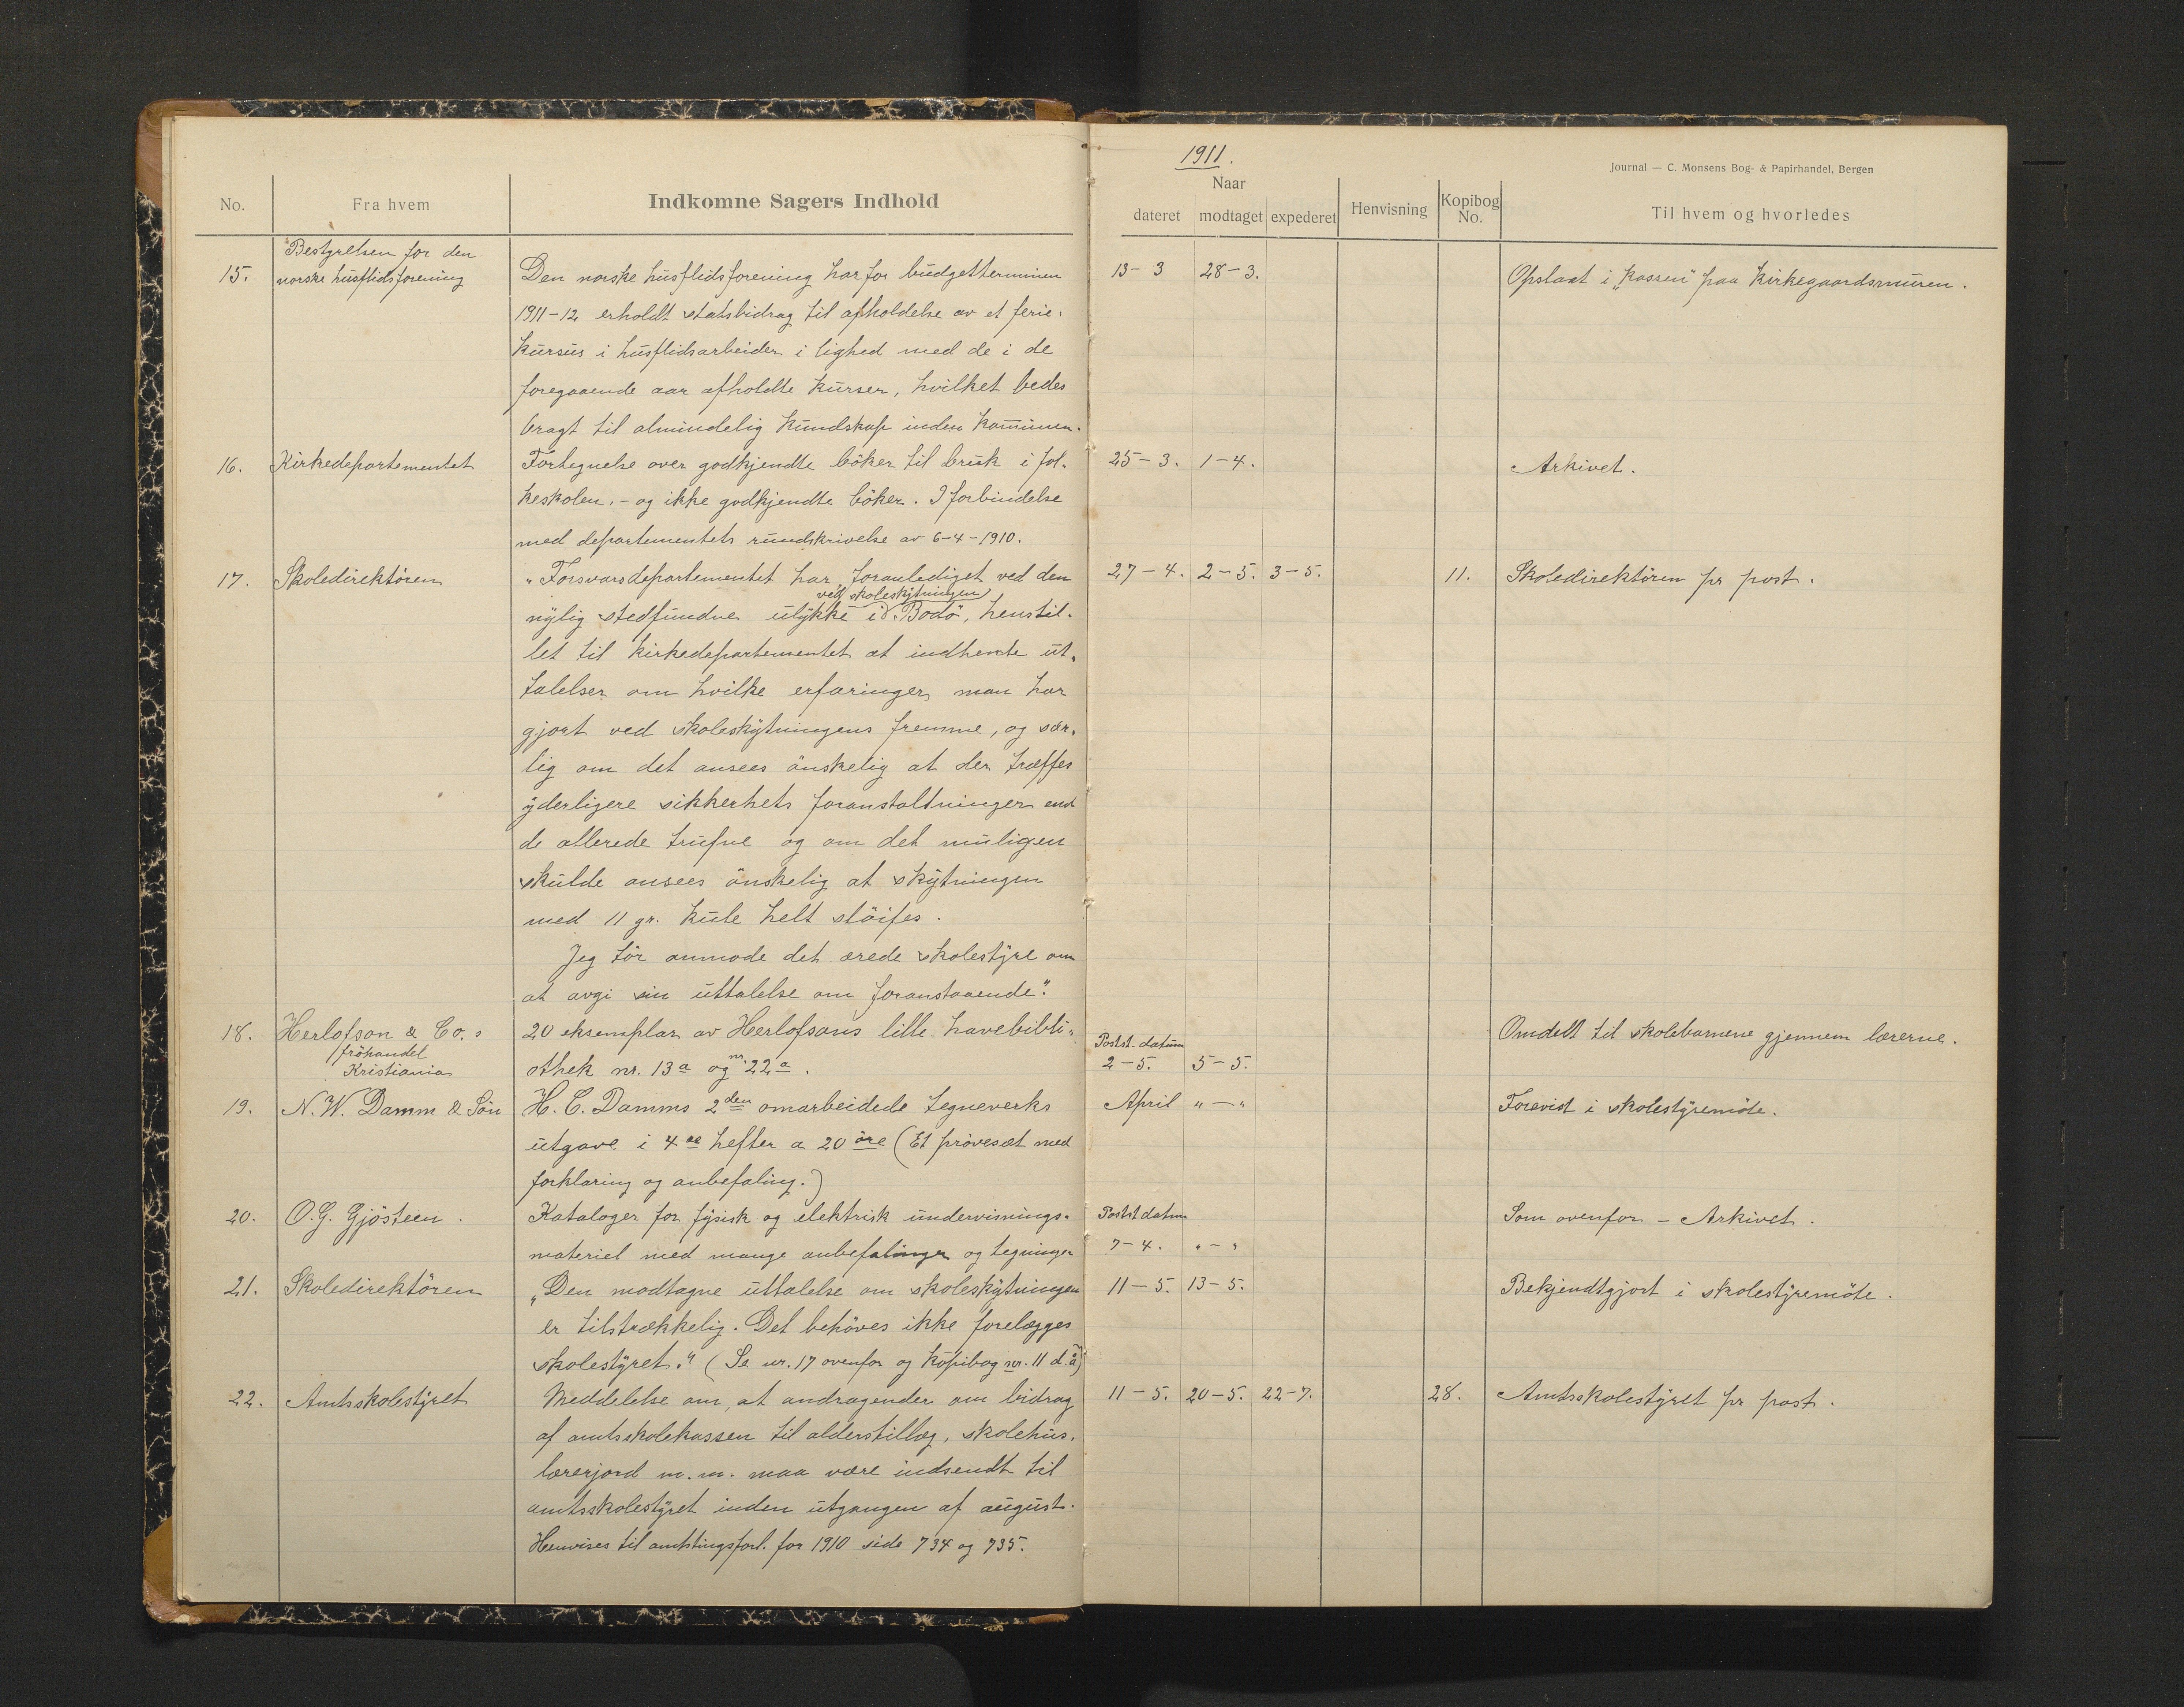 1911.
Journal — C. Monsens Bog- & Papirhandel, Bergen
No. Fra hvem Indkomne Sagers Indhold
Naar
dateret modtaget expederet Henvisning Kopibog No. Til hvem og hvorledes
Bestyrelsen for den
15. norske husflidsforening Den norske husflidsforening har for budgetterminen 13-3 28-3. Opslaat i "kassen" paa Kirkegaardsmuren.
1911-12 erholdt statsbidrag til afholdelse av et ferie-
kursus i husflidsarbeider i lighed med de i de
foregaaende aar afholdte kurser, hvilket bedes
bragt til almindelig kundskap inden kommunen.
16. Kirkedepartementet Fortegnelse over godkjendte böker til bruk i fol- 25-3. 1-4. Arkivet.
keskolen, - og ikke godkjendte böker. I forbindelse
med departementets rundskrivelse av 6-4-1910.
17. Skoledirektören "Forsvarsdepartementet har, foranlediget ved den 27-4. 2-5. 3-5. 11. Skoledirektören pr post.
ved skoleskytningen
nylig stedfundne ulykke i Bodö, henstil-
let til kirkedepartementet at indhente ut-
talelser om hvilke erfaringer man har
gjort ved skoleskytningens fremme, og sær-
lig om det ansees önskelig at der træffes
yderligere sikkerhets foranstaltninger end
de allerede trufne og om det muligen
skulde ansees önskelig at skytningen
med 11 gr. kule helt slöifes.
Jeg tör anmode det ærede skolestyre om
at avgi sin uttalelse om foranstaaende".
18. Herlofson & Co.s 20 eksemplar av Herlofsons lille havebibli- Postst. datum Omdelt til skolebarnene gjennem lærerne.
fröhandel
Kristiania othek nr. 13a og nr. 22a. 2-5. 5-5.
19. N. W. Damm & Sön H. C. Damms 2den omarbeidede tegneverks April "-" Forevist i skolestyremöte.
utgave i 4 hefter a 20 öre (Et prövesæt med
forklaring og anbefaling.)
20. O. G. Gjösteen. Kataloger for fysisk og elektrisk undervisnings- Postst datum Som ovenfor - Arkivet.
materiel med mange anbefalinger og tegninger 7-4. "-"
21. Skoledirektören "Den modtagne uttalelse om skoleskytningen 11-5. 13-5. Bekjendtgjort i skolestyremöte.
er tilstrækkelig. Det behöves ikke forelægges
skolestyret." (Se nr. 17 ovenfor og kopibog nr. 11 d. å)
22. Amtsskolestyret Meddelelse om, at andragender om bidrag 11-5. 20-5. 22-7. 28. Amtsskolestyret pr post.
af amtsskolekassen til alderstillæg, skolehus,
lærerjord m. m. maa være indsendt til
amtsskolestyret inden utgangen af august.
Henvises til amtstingsforh. for 1910 side 734 og 735.